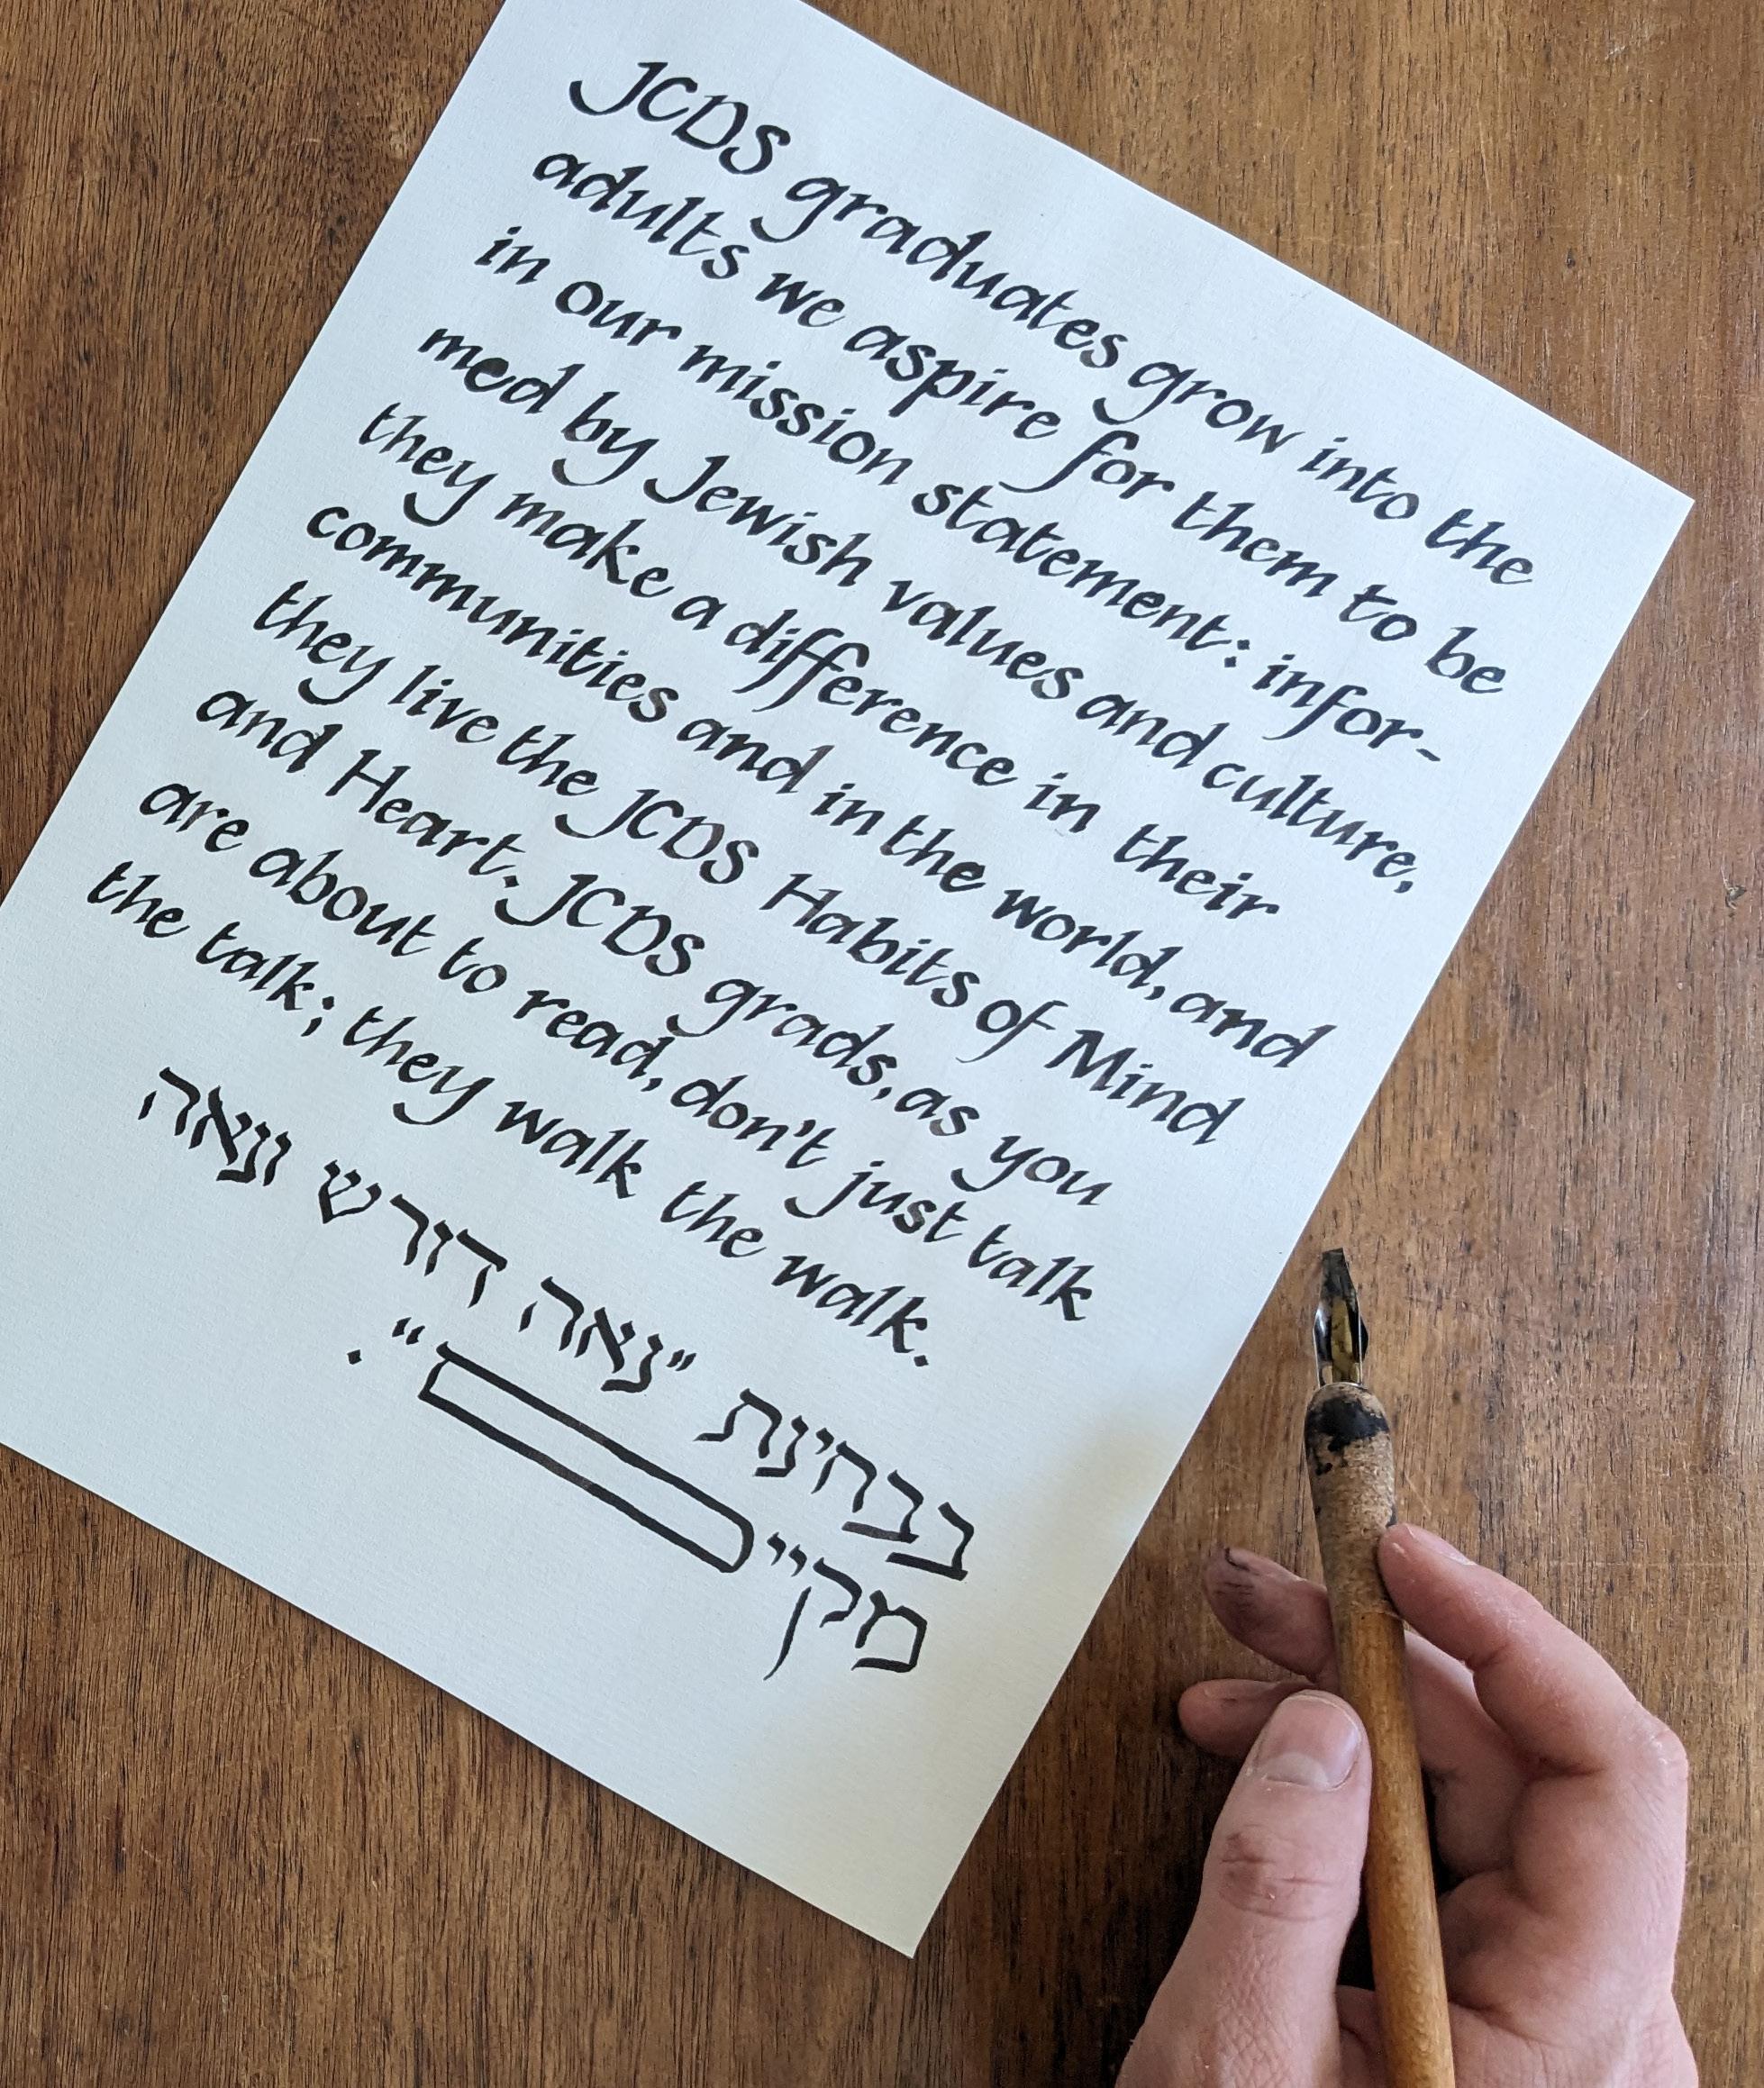 JCDS graduates grow into the
adults we aspire for them to be
in our mission statement: infor-
med by Jewish values and culture,
they make a difference in their
communities and in the world, and
they live the JCDS Habits of Mind
and Heart. JCDS grads, as you
are about to read, don't just talk
the talk; they walk the walk.
בבחינת "נאה דורש ונאה
מקיים".